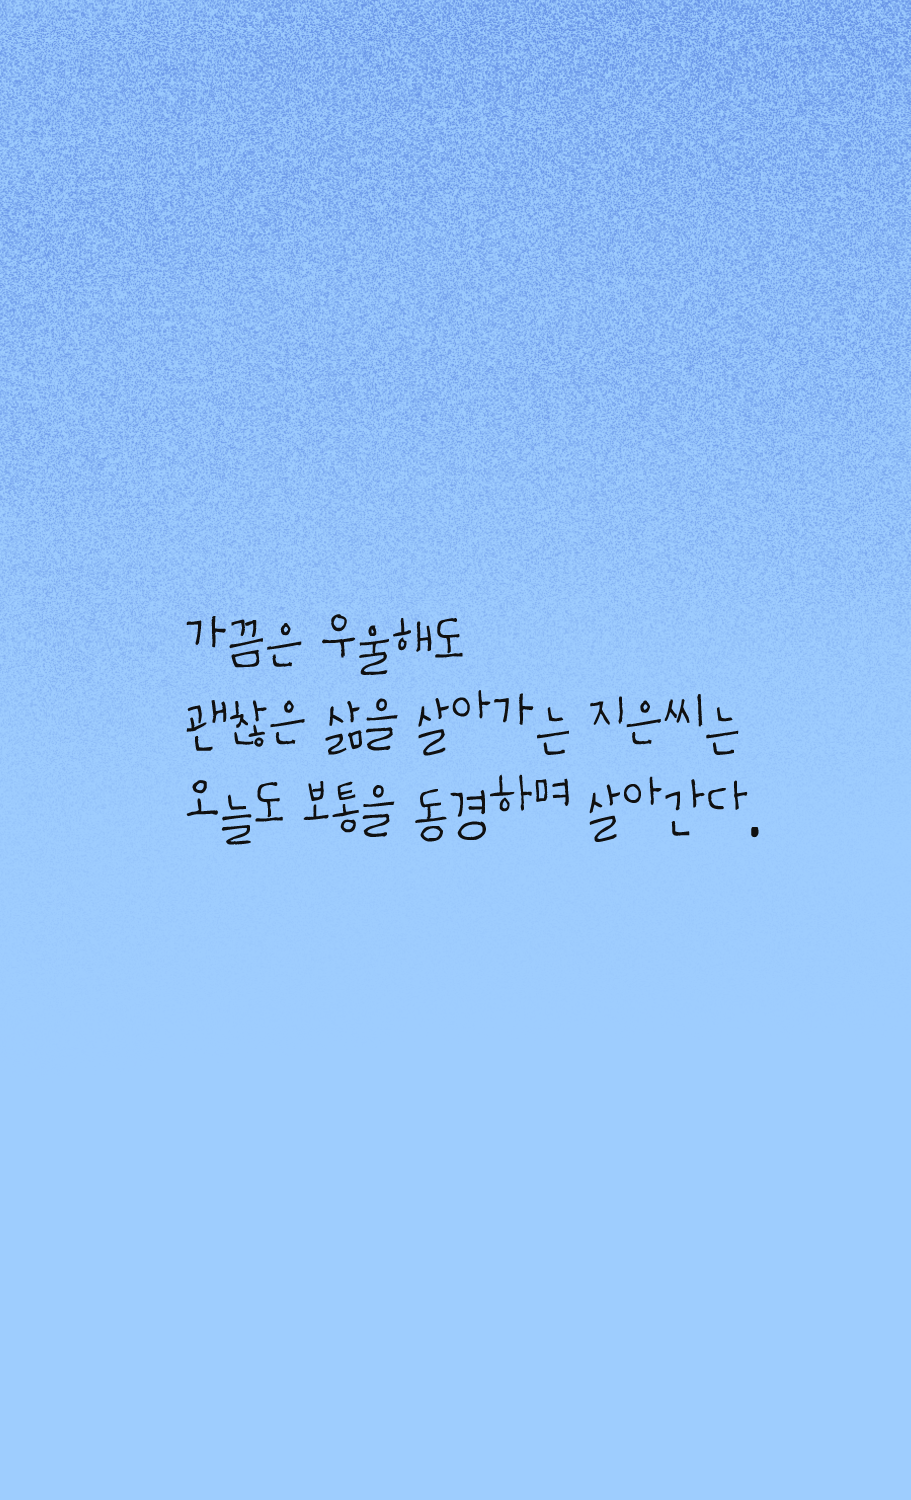 가끔은 우울해도
괜찮은 삶을 살아가는 지은씨는
오늘도 보통을 동경하며 살아간다.